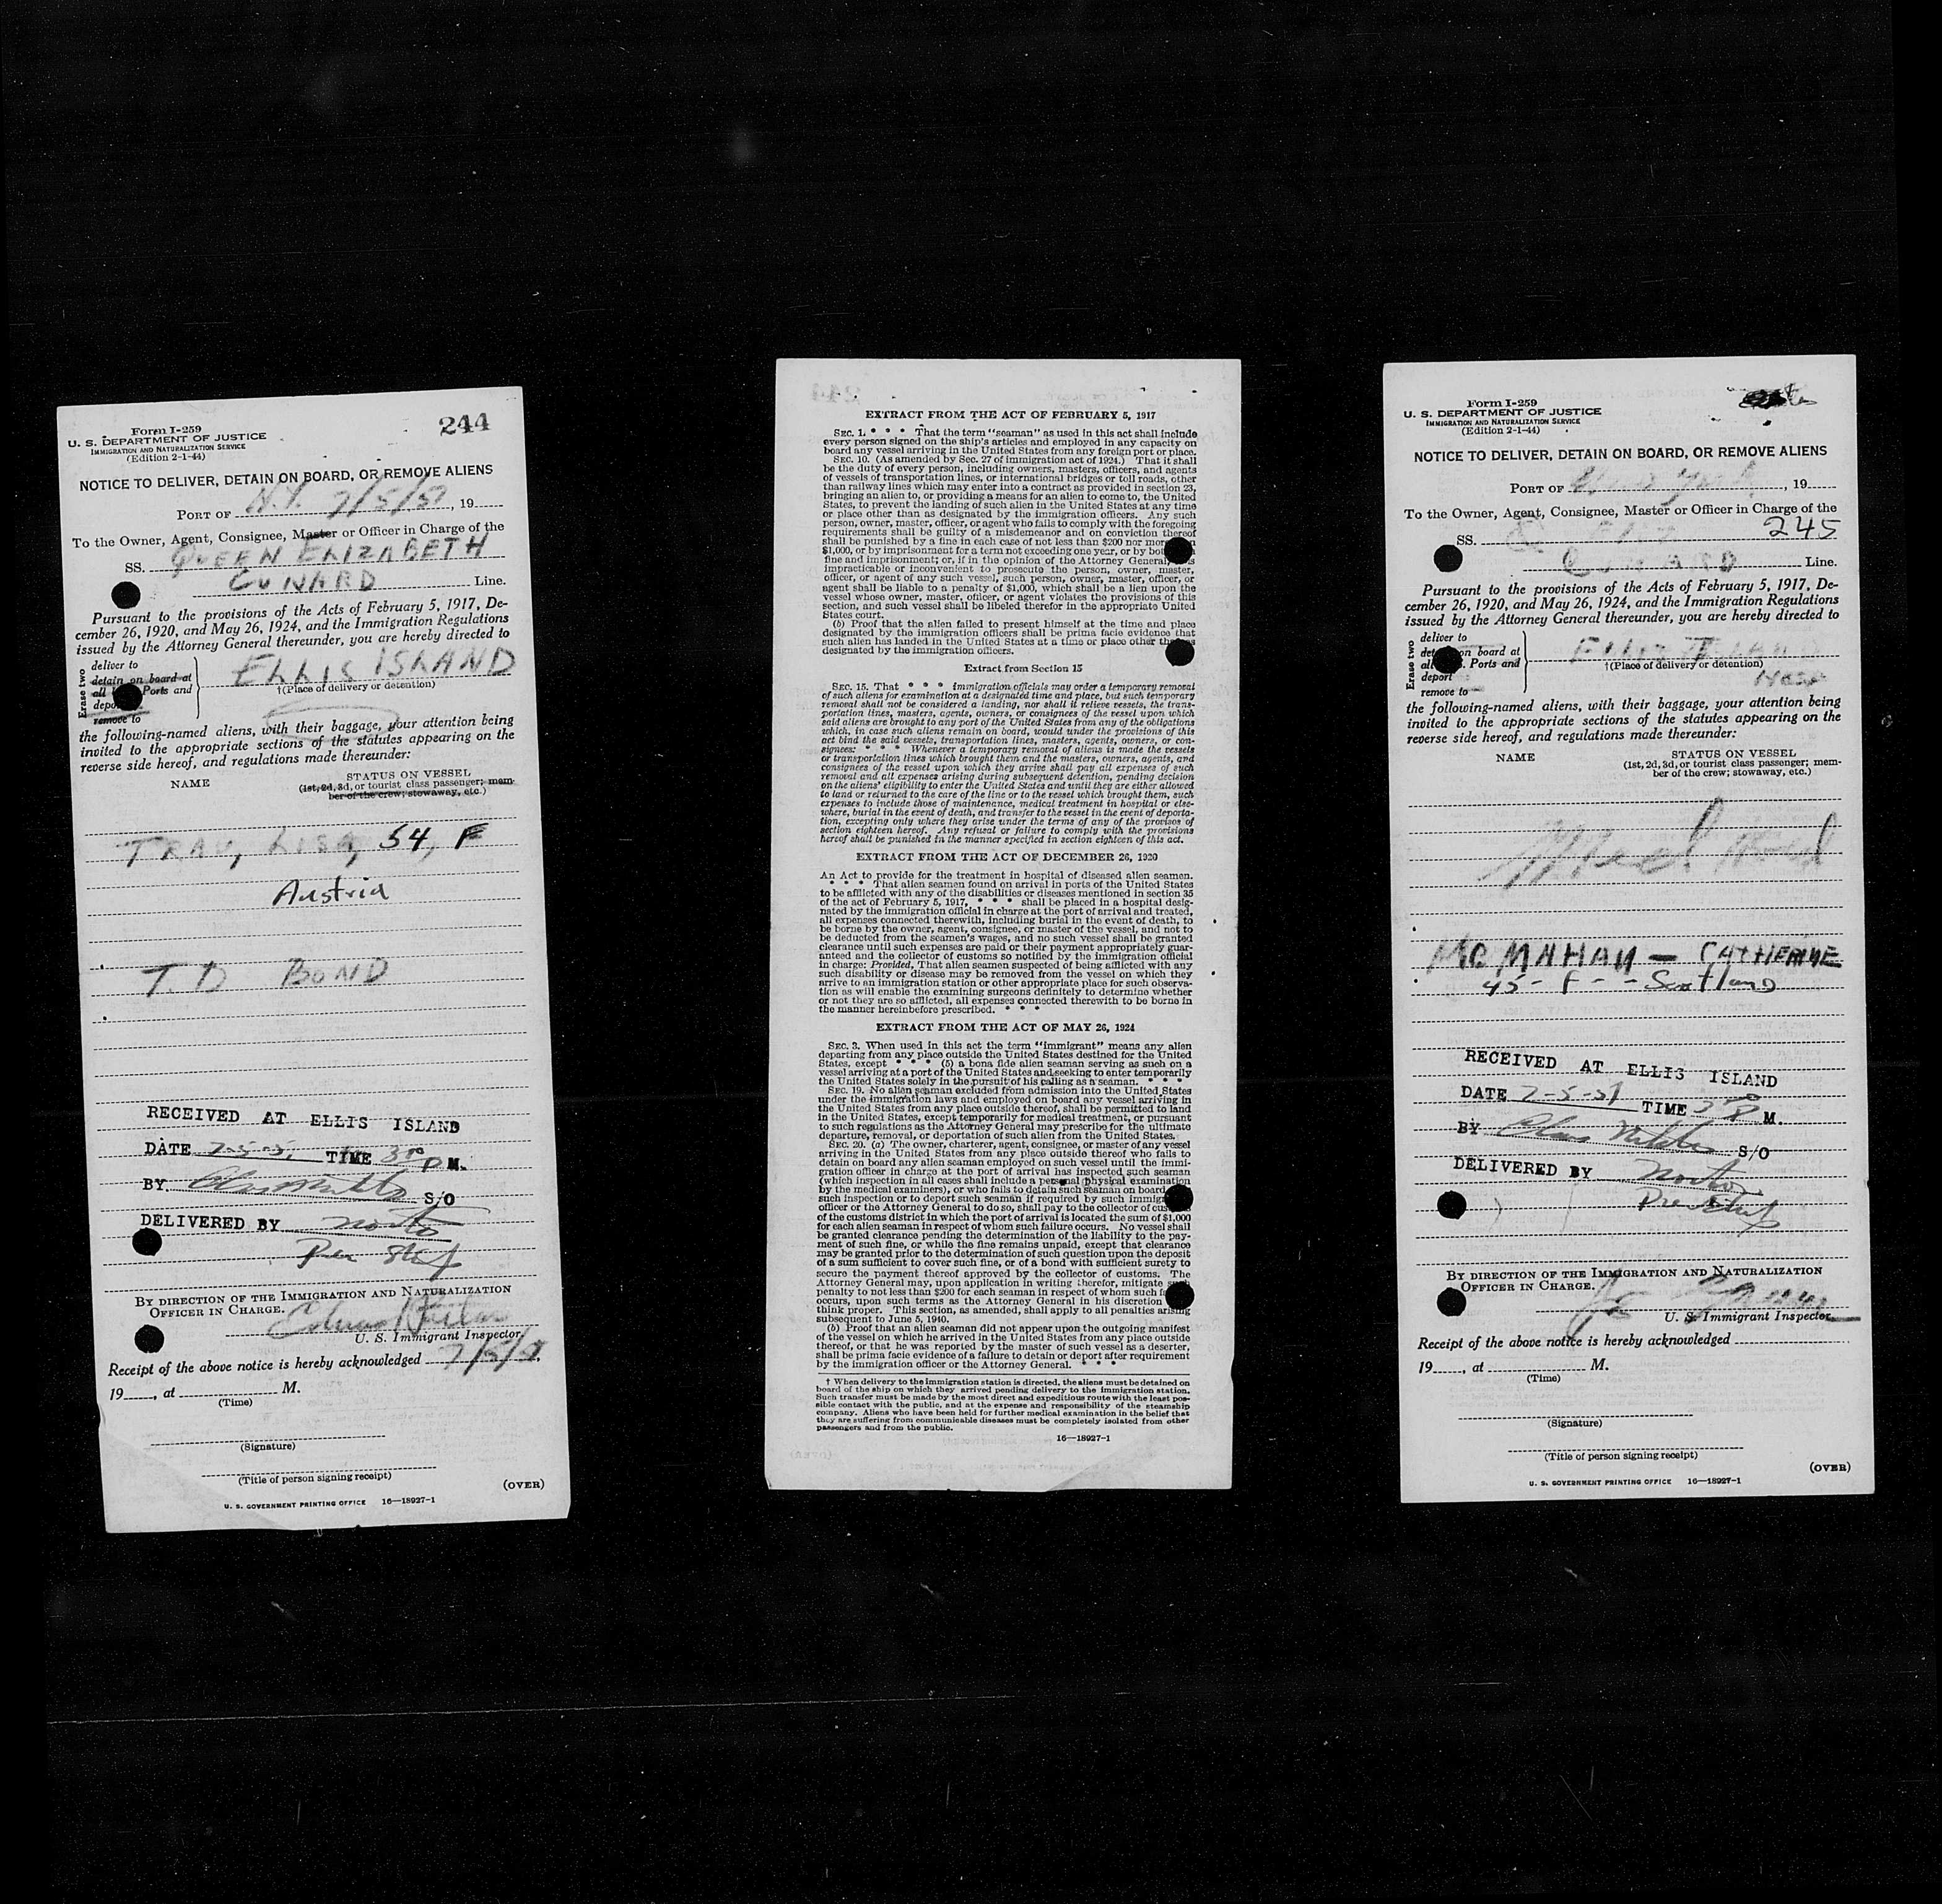 244
Form I-259
U. S. DEPARTMENT OF JUSTICE
IMMIGRATION AND NATURALIZATION SERVICE
(Edition 2-1-44)
NOTICE TO DELIVER, DETAIN ON BOARD, OR REMOVE ALIENS
PORT OF N.Y. 7/5/51, 19
To the Owner, Agent, Consignee, Master or Officer in Charge of the
SS. QUEEN ELIZABETH
CUNARD Line.
Pursuant to the provisions of the Acts of February 5, 1917, De-
cember 26, 1920, and May 26, 1924, and the Immigration Regulations
issued by the Attorney General thereunder, you are hereby directed to
Erase two
deliver to
detain on board at
all Ports and
depo
remove to
ELLIS ISLAND
†(Place of delivery or detention)
the following-named aliens, with their baggage, your attention being
invited to the appropriate sections of the statutes appearing on the
reverse side hereof, and regulations made thereunder:
NAME STATUS ON VESSEL
(1st, 2d, 3d, or tourist class passenger; mem-
ber of the crew; stowaway, etc.)
TRAU, LISA, 54, F
Austria
T.D BOND
RECEIVED AT ELLIS ISLAND
DATE 7-5-51 TIME 3 P M.
BY S/O
DELIVERED BY
BY DIRECTION OF THE IMMIGRATION AND NATURALIZATION
OFFICER IN CHARGE.
U. S. Immigrant Inspector.
Receipt of the above notice is hereby acknowledged 7/5/51,
19, at M.
(Time)
(Signature)
(Title of person signing receipt)
(OVER)
U. S. GOVERNMENT PRINTING OFFICE 16—18927-1
EXTRACT FROM THE ACT OF FEBRUARY 5, 1917
SEC. 1. * * * That the term "seaman" as used in this act shall include
every person signed on the ship's articles and employed in any capacity on
board any vessel arriving in the United States from any foreign port or place.
SEC. 10. (As amended by Sec. 27 of immigration act of 1924.) That it shall
be the duty of every person, including owners, masters, officers, and agents
of vessels of transportation lines, or international bridges or toll roads, other
than railway lines which may enter into a contract as provided in section 23,
bringing an alien to, or providing a means for an alien to come to, the United
States, to prevent the landing of such alien in the United States at any time
or place other than as designated by the immigration officers. Any such
person, owner, master, officer, or agent who fails to comply with the foregoing
requirements shall be guilty of a misdemeanor and on conviction thereof
shall be punished by a fine in each case of not less than $200 nor mor
$1,000, or by imprisonment for a term not exceeding one year, or by bot
fine and imprisonment; or, if in the opinion of the Attorney General,
impracticable or inconvenient to prosecute the person, owner, master,
officer, or agent of any such vessel, such person, owner, master, officer, or
agent shall be liable to a penalty of $1,000, which shall be a lien upon the
vessel whose owner, master, officer, or agent violates the provisions of this
section, and such vessel shall be libeled therefor in the appropriate United
States court.
(b) Proof that the alien failed to present himself at the time and place
designated by the immigration officers shall be prima facie evidence that
such alien has landed in the United States at a time or place other tha
designated by the immigration officers.
Extract from Section 15
SEC. 15. That * * * immigration officials may order a temporary removal
of such aliens for examination at a designated time and place, but such temporary
removal shall not be considered a landing, nor shall it relieve vessels, the trans-
portation lines, masters, agents, owners, or consignees of the vessel upon which
said aliens are brought to any part of the United States from any of the obligations
which, in case such aliens remain on board, would under the provisions of this
act bind the said vessels, transportation lines, masters, agents, owners, or con-
signees: * * * Whenever a temporary removal of aliens is made the vessels
or transportation lines which brought them and the masters, owners, agents, and
consignees of the vessel upon which they arrive shall pay all expenses of such
removal and all expenses arising during subsequent detention, pending decision
on the aliens' eligibility to enter the United States and until they are either allowed
to land or returned to the care of the line or to the vessel which brought them, such
expenses to include those of maintenance, medical treatment in hospital or else-
where, burial in the event of death, and transfer to the vessel in the event of deporta-
tion, excepting only where they arise under the terms of any of the provisos of
section eighteen hereof. Any refusal or failure to comply with the provisions
hereof shall be punished in the manner specified in section eighteen of this act.
EXTRACT FROM THE ACT OF DECEMBER 26, 1920
An Act to provide for the treatment in hospital of diseased alien seamen.
* * * That alien seamen found on arrival in ports of the United States
to be afflicted with any of the disabilities or diseases mentioned in section 35
of the act of February 5, 1917, * * * shall be placed in a hospital desig-
nated by the immigration official in charge at the port of arrival and treated,
all expenses connected therewith, including burial in the event of death, to
be borne by the owner, agent, consignee, or master of the vessel, and not to
be deducted from the seamen's wages, and no such vessel shall be granted
clearance until such expenses are paid or their payment appropriately guar-
anteed and the collector of customs so notified by the immigration official
in charge: Provided, That alien seamen suspected of being afflicted with any
such disability or disease may be removed from the vessel on which they
arrive to an immigration station or other appropriate place for such observa-
tion as will enable the examining surgeons definitely to determine whether
or not they are so afflicted, all expenses connected therewith to be borne in
the manner hereinbefore prescribed. * * *
EXTRACT FROM THE ACT OF MAY 26, 1924
SEC. 3. When used in this act the term "immigrant" means any alien
departing from any place outside the United States destined for the United
States, except * * * (5) a bona fide alien seaman serving as such on a
vessel arriving at a port of the United States and seeking to enter temporarily
the United States solely in the pursuit of his calling as a seaman. * * *
SEC. 19. No alien seaman excluded from admission into the United States
under the immigration laws and employed on board any vessel arriving in
the United States from any place outside thereof, shall be permitted to land
in the United States, except temporarily for medical treatment, or pursuant
to such regulations as the Attorney General may prescribe for the ultimate
departure, removal, or deportation of such alien from the United States.
SEC. 20. (a) The owner, charterer, agent, consignee, or master of any vessel
arriving in the United States from any place outside thereof who fails to
detain on board any alien seaman employed on such vessel until the immi-
gration officer in charge at the port of arrival has inspected such seaman
(which inspection in all cases shall include a personal physical examination
by the medical examiners), or who fails to detain such seaman on board
such inspection or to deport such seaman if required by such immigr
officer or the Attorney General to do so, shall pay to the collector of cus
of the customs district in which the port of arrival is located the sum of $1,000
for each alien seaman in respect of whom such failure occurs. No vessel shall
be granted clearance pending the determination of the liability to the pay-
ment of such fine, or while the fine remains unpaid, except that clearance
may be granted prior to the determination of such question upon the deposit
of a sum sufficient to cover such fine, or of a bond with sufficient surety to
secure the payment thereof approved by the collector of customs. The
Attorney General may, upon application in writing therefor, mitigate such
penalty to not less than $200 for each seaman in respect of whom such fa
occurs, upon such terms as the Attorney General in his discretion
think proper. This section, as amended, shall apply to all penalties arising
subsequent to June 5, 1940.
(b) Proof that an alien seaman did not appear upon the outgoing manifest
of the vessel on which he arrived in the United States from any place outside
thereof, or that he was reported by the master of such vessel as a deserter,
shall be prima facie evidence of a failure to detain or deport after requirement
by the immigration officer or the Attorney General. * * *
† When delivery to the immigration station is directed, the aliens must be detained on
board of the ship on which they arrived pending delivery to the immigration station.
Such transfer must be made by the most direct and expeditious route with the least pos-
sible contact with the public, and at the expense and responsibility of the steamship
company. Aliens who have been held for further medical examination in the belief that
they are suffering from communicable diseases must be completely isolated from other
passengers and from the public.
16—18927-1
Form I-259
U. S. DEPARTMENT OF JUSTICE
IMMIGRATION AND NATURALIZATION SERVICE
(Edition 2-1-44)
NOTICE TO DELIVER, DETAIN ON BOARD, OR REMOVE ALIENS
PORT OF New York, 19
To the Owner, Agent, Consignee, Master or Officer in Charge of the
245
SS. Q
CUNARD Line.
Pursuant to the provisions of the Acts of February 5, 1917, De-
cember 26, 1920, and May 26, 1924, and the Immigration Regulations
issued by the Attorney General thereunder, you are hereby directed to
Erase two
deliver to
det on board at
all Ports and
deport
remove to
Ellis Island
†(Place of delivery or detention)
Hosp
the following-named aliens, with their baggage, your attention being
invited to the appropriate sections of the statutes appearing on the
reverse side hereof, and regulations made thereunder:
NAME STATUS ON VESSEL
(1st, 2d, 3d, or tourist class passenger; mem-
ber of the crew; stowaway, etc.)
MC MAHAN — CATHERINE
45 - F - - Scotland
RECEIVED AT ELLIS ISLAND
DATE 7-5-51 TIME 3 P M.
BY S/O
DELIVERED BY
BY DIRECTION OF THE IMMIGRATION AND NATURALIZATION
OFFICER IN CHARGE.
U. S. Immigrant Inspector.
Receipt of the above notice is hereby acknowledged
19, at M.
(Time)
(Signature)
(Title of person signing receipt)
(OVER)
U. S. GOVERNMENT PRINTING OFFICE 16—18927-1